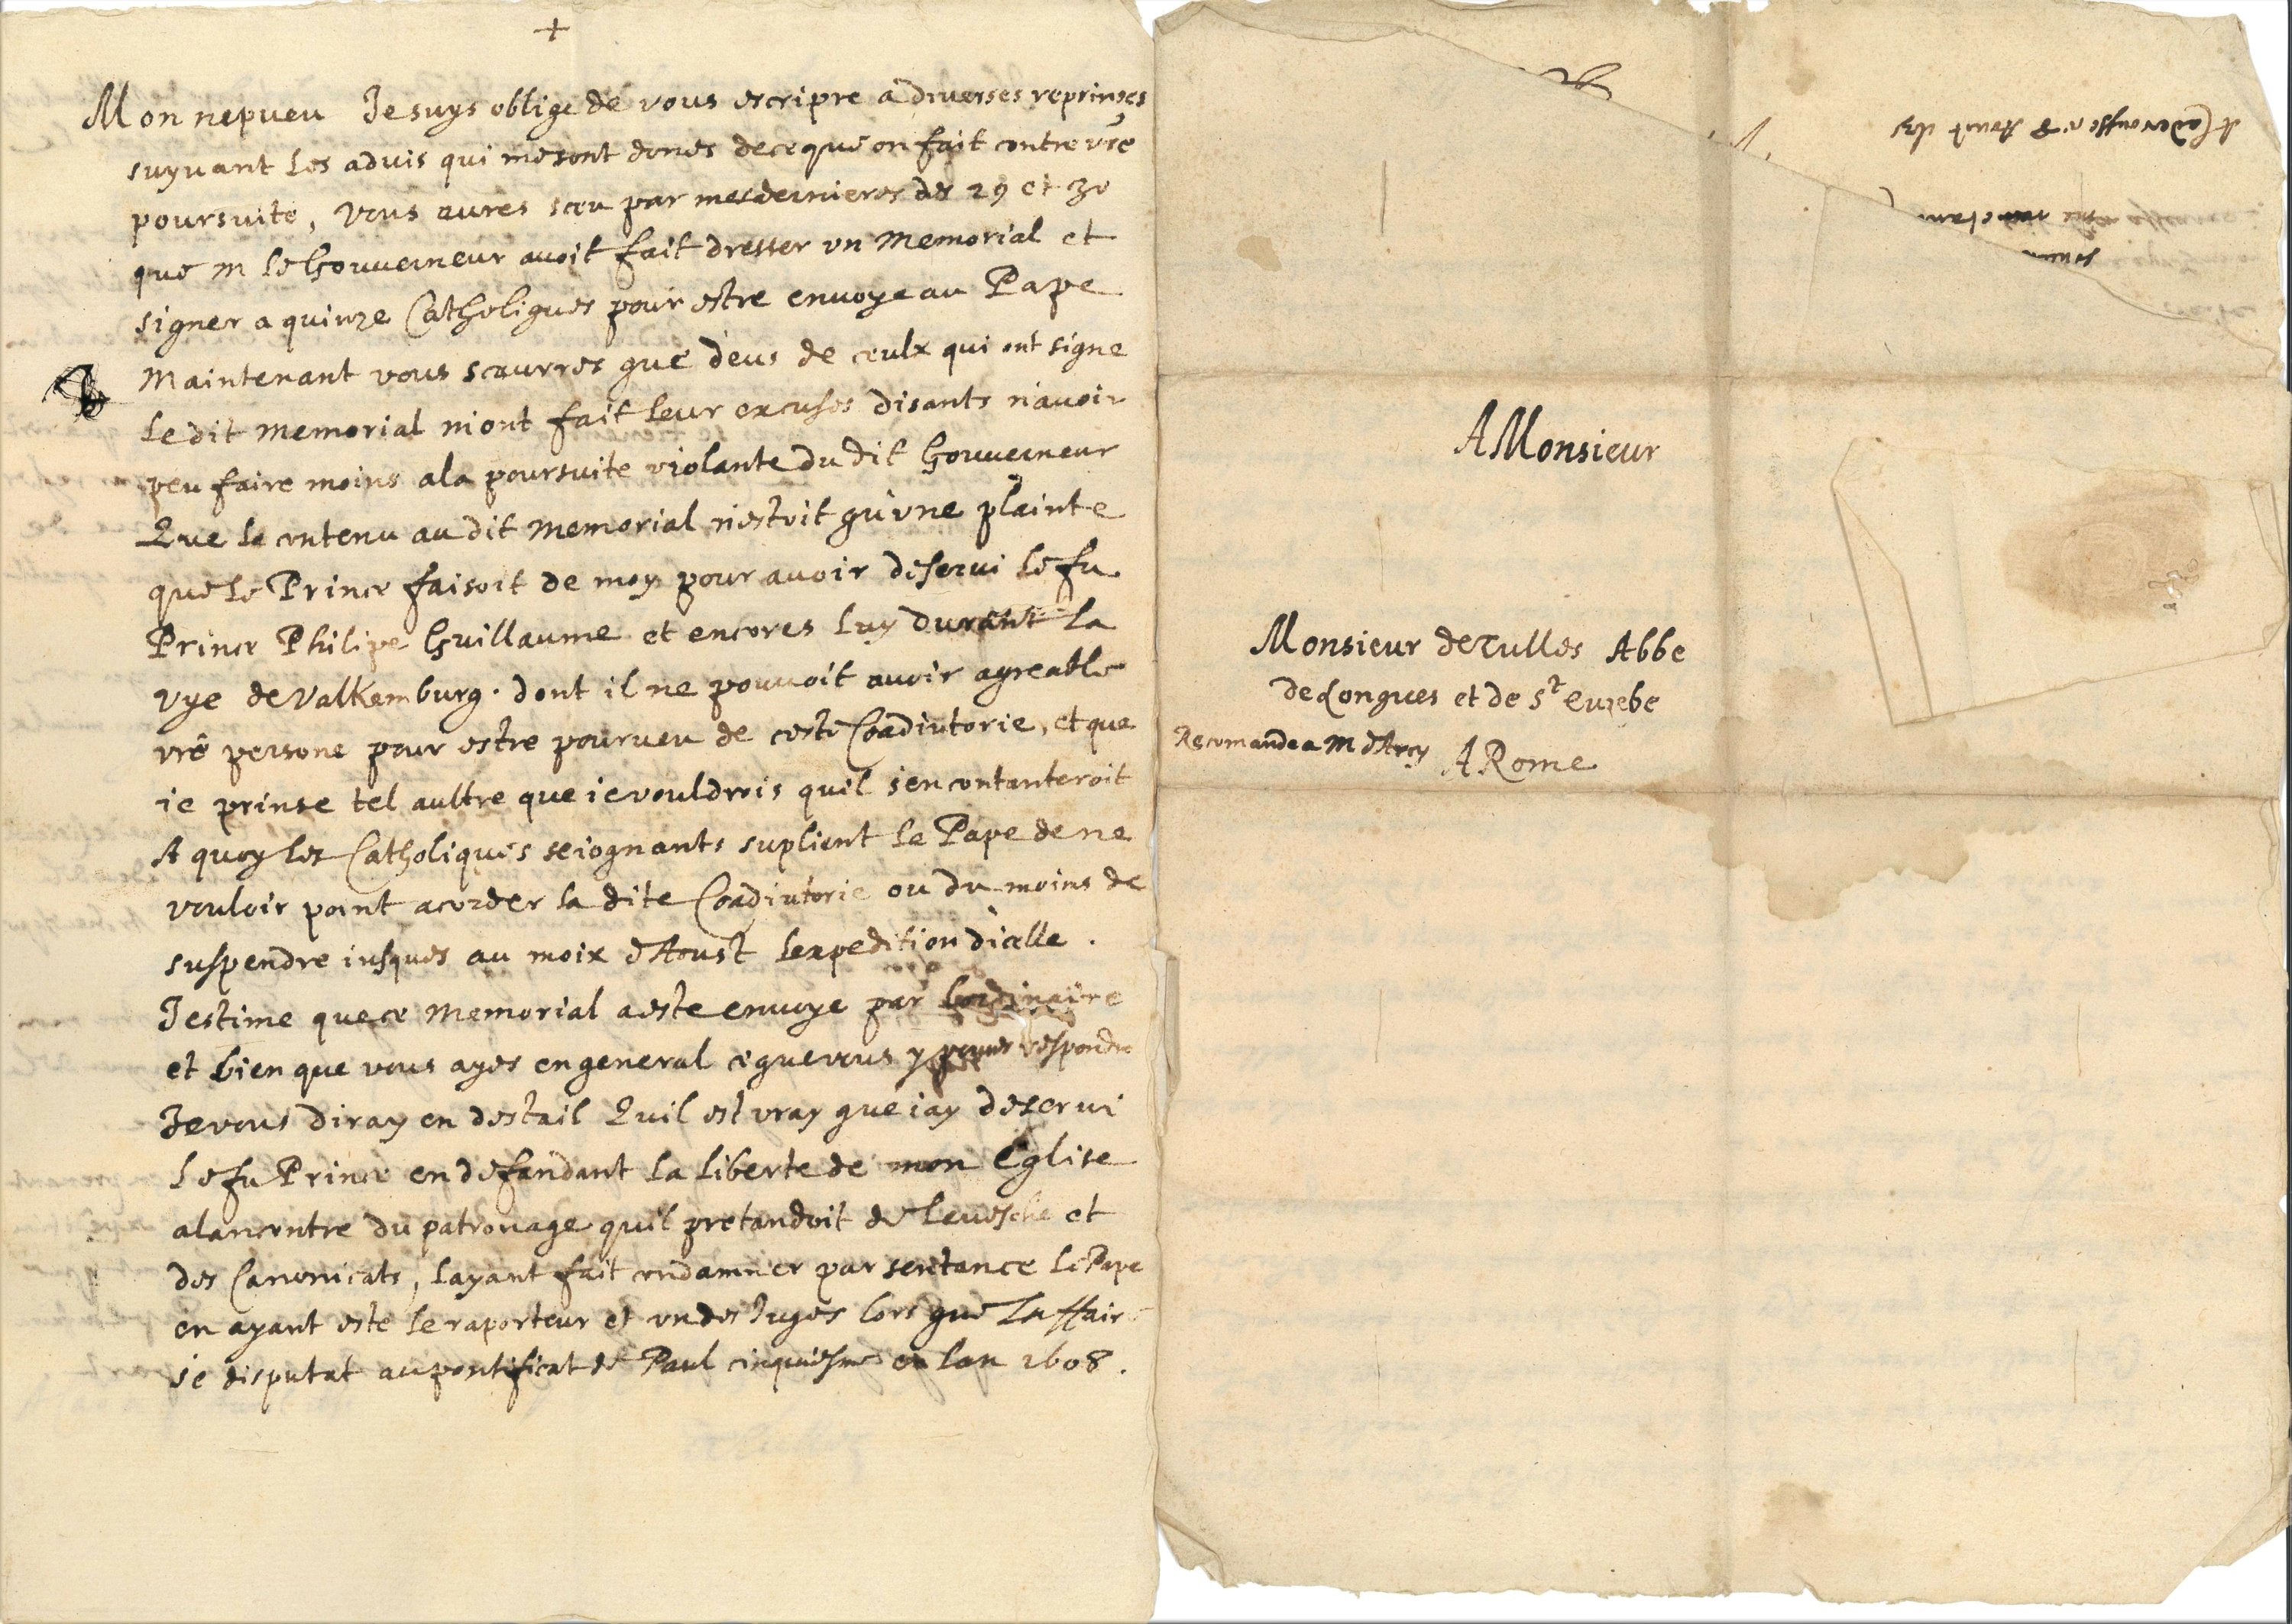 +
Mon nepueu Je suys oblige de vous escripre a diverses reprinses
suyvant les advis qui me sont dones de ce que on fait contre vre
poursuite, vous aures sceu par mes dernieres des 29 et 30
que m le Gouverneur avoit fait dresser un memorial et
signer a quinze Catholiques pour estre envoye au Pape
Maintenant vous scaurres que deus de ceulx qui ont signe
le dit memorial m'ont fait leur excuses disants n'avoir
peu faire moins a la poursuite violante du dit Gouverneur
Que le contenu au dit memorial n'estoit qu'une plainte
que le Prince faisoit de moy pour avoir deservi le fu
Prince Philipe Guillaume et encores luy durant la
vye de Valkemburg. dont il ne pouvoit avoir agreable
vre persone pour estre pourveu de ceste Coadiutorie, et que
ie prinse tel aultre que ie vouldrois quil s'en contanteroit
A quoy les Catholiques se ioignants suplient le Pape de ne
vouloir point acorder la dite Coadiutorie ou du moins de
suspendre iusques au moix d'Aoust l'expedition d'icelle.
J'estime que ce memorial a este envoye par l'ordinaire
et bien que vous ayes en general ce que vous y pouves respondre
Je vous diray en destail Quil est vray que iay deservi
le fu Prince en defandant la liberte de mon Eglise
a lancontre du patronage quil pretandoit de levesche et
des Canonicats, layant fait condamner par sentance le Pape
en ayant este le raporteur et un des Juges lors que laffaire
se disputat au pontificat de Paul cinquiesme en lan 1608.
A Monsieur
Monsieur de Tulles Abbe
de Longues et de St Eusebe
Recomande a M d'Arcy A Rome